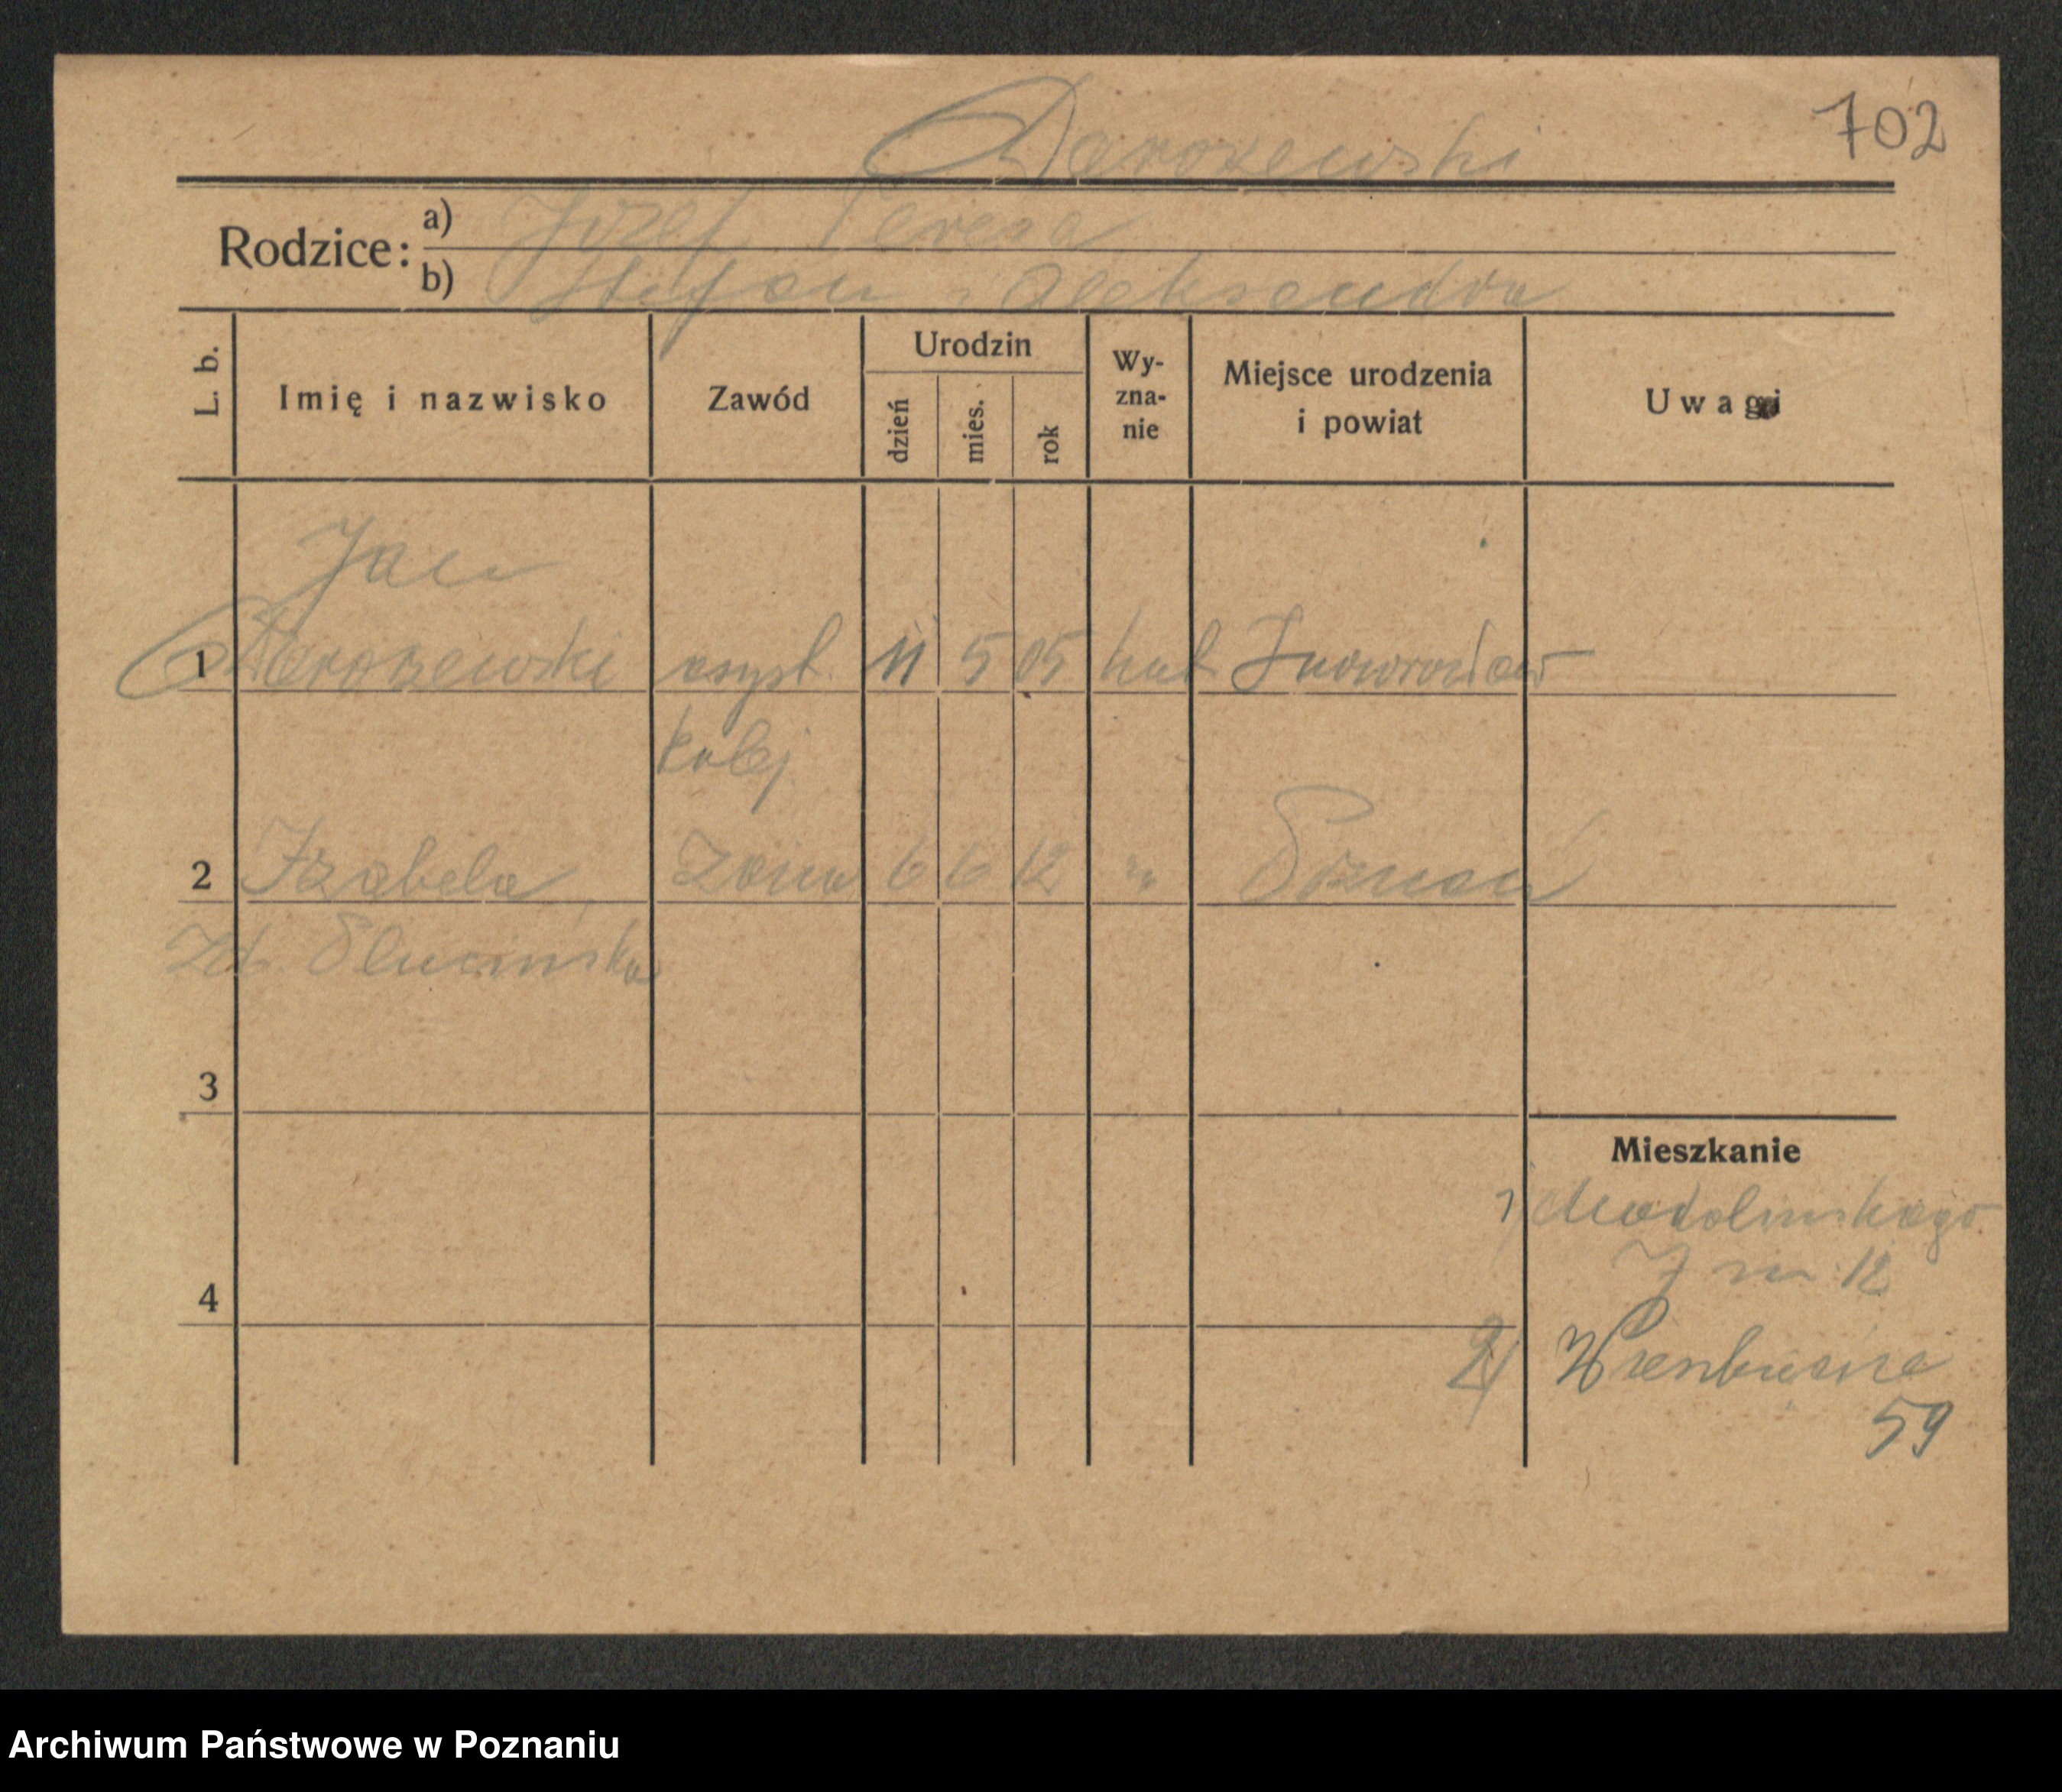 702
Darozewski
Rodzice:
a) Józef Teresa
b) Stefan i Aleksandra
L. b.
Imię i nazwisko
Zawód
Urodzin
dzień
mies.
rok
Wy-
zna-
nie
Miejsce urodzenia
i powiat
Uwagi
Jan
1 Darozewski asyst. 11 5 05 kat Inowrocław
kolej
2 Izabela, żona 6 6 12 " Poznań
zd.
3
Mieszkanie
1) Madalińskiego
7 m 12
4
2) Wierzbięcice
59
Archiwum Państwowe w Poznaniu